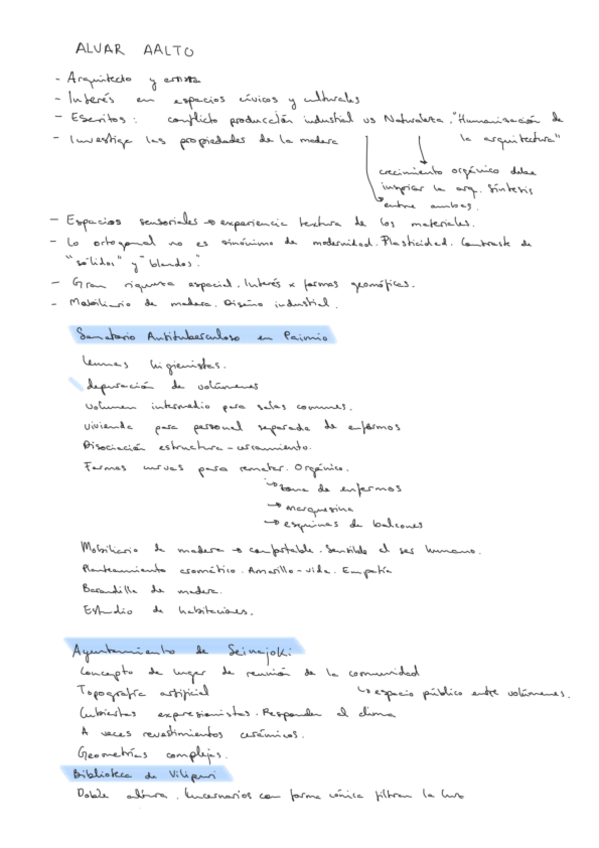 ALVAR AALTO
- Arquitecto y artista
- Interés en espacios cívicos y culturales
- Escritos: conflicto producción industrial vs Naturaleza. "Humanización de la arquitectura"
- Investiga las propiedades de la madera
crecimiento orgánico debe
inspirar la arq. Síntesis
entre ambas.
- Espacios sensoriales → experiencia textura de los materiales.
- Lo ortogonal no es sinónimo de modernidad. Plasticidad. Contraste de
"sólidos" y "blandos".
- Gran riqueza espacial. Interés x formas geométricas.
- Mobiliario de madera. Diseño industrial.
Sanatorio Antituberculoso en Paimio
Lemas higienistas.
depuración de volúmenes
volumen intermedio para salas comunes.
vivienda para personal separada de enfermos
Disociación estructura - cerramiento.
Formas curvas para rematar. Orgánico.
↳ zona de enfermos
→ marquesina
→ esquinas de balcones
Mobiliario de madera → confortable. Sensible al ser humano.
Planteamiento cromático. Amarillo - vida. Empatía
Barandilla de madera.
Estudio de habitaciones.
Ayuntamiento de Seinajoki
Concepto de lugar de reunión de la comunidad
Topografía artificial ↳ espacio público entre volúmenes.
Cubiertas expresionistas. Responden al clima
A veces revestimientos cerámicos.
Geometrías complejas.
Biblioteca de Viipuri
Doble altura. Lucernarios con forma cónica filtran la luz